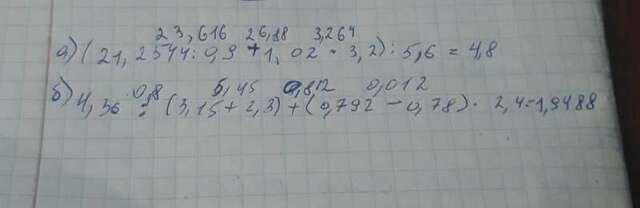 23,616 26,88 3,264
а) (21,2544 : 0,9 + 1,02 · 3,2) : 5,6 = 4,8
0,8 5,45 0,812 0,012
б) 4,36 : (3,15 + 2,3) + (0,792 - 0,78) · 2,4 = 1,9488